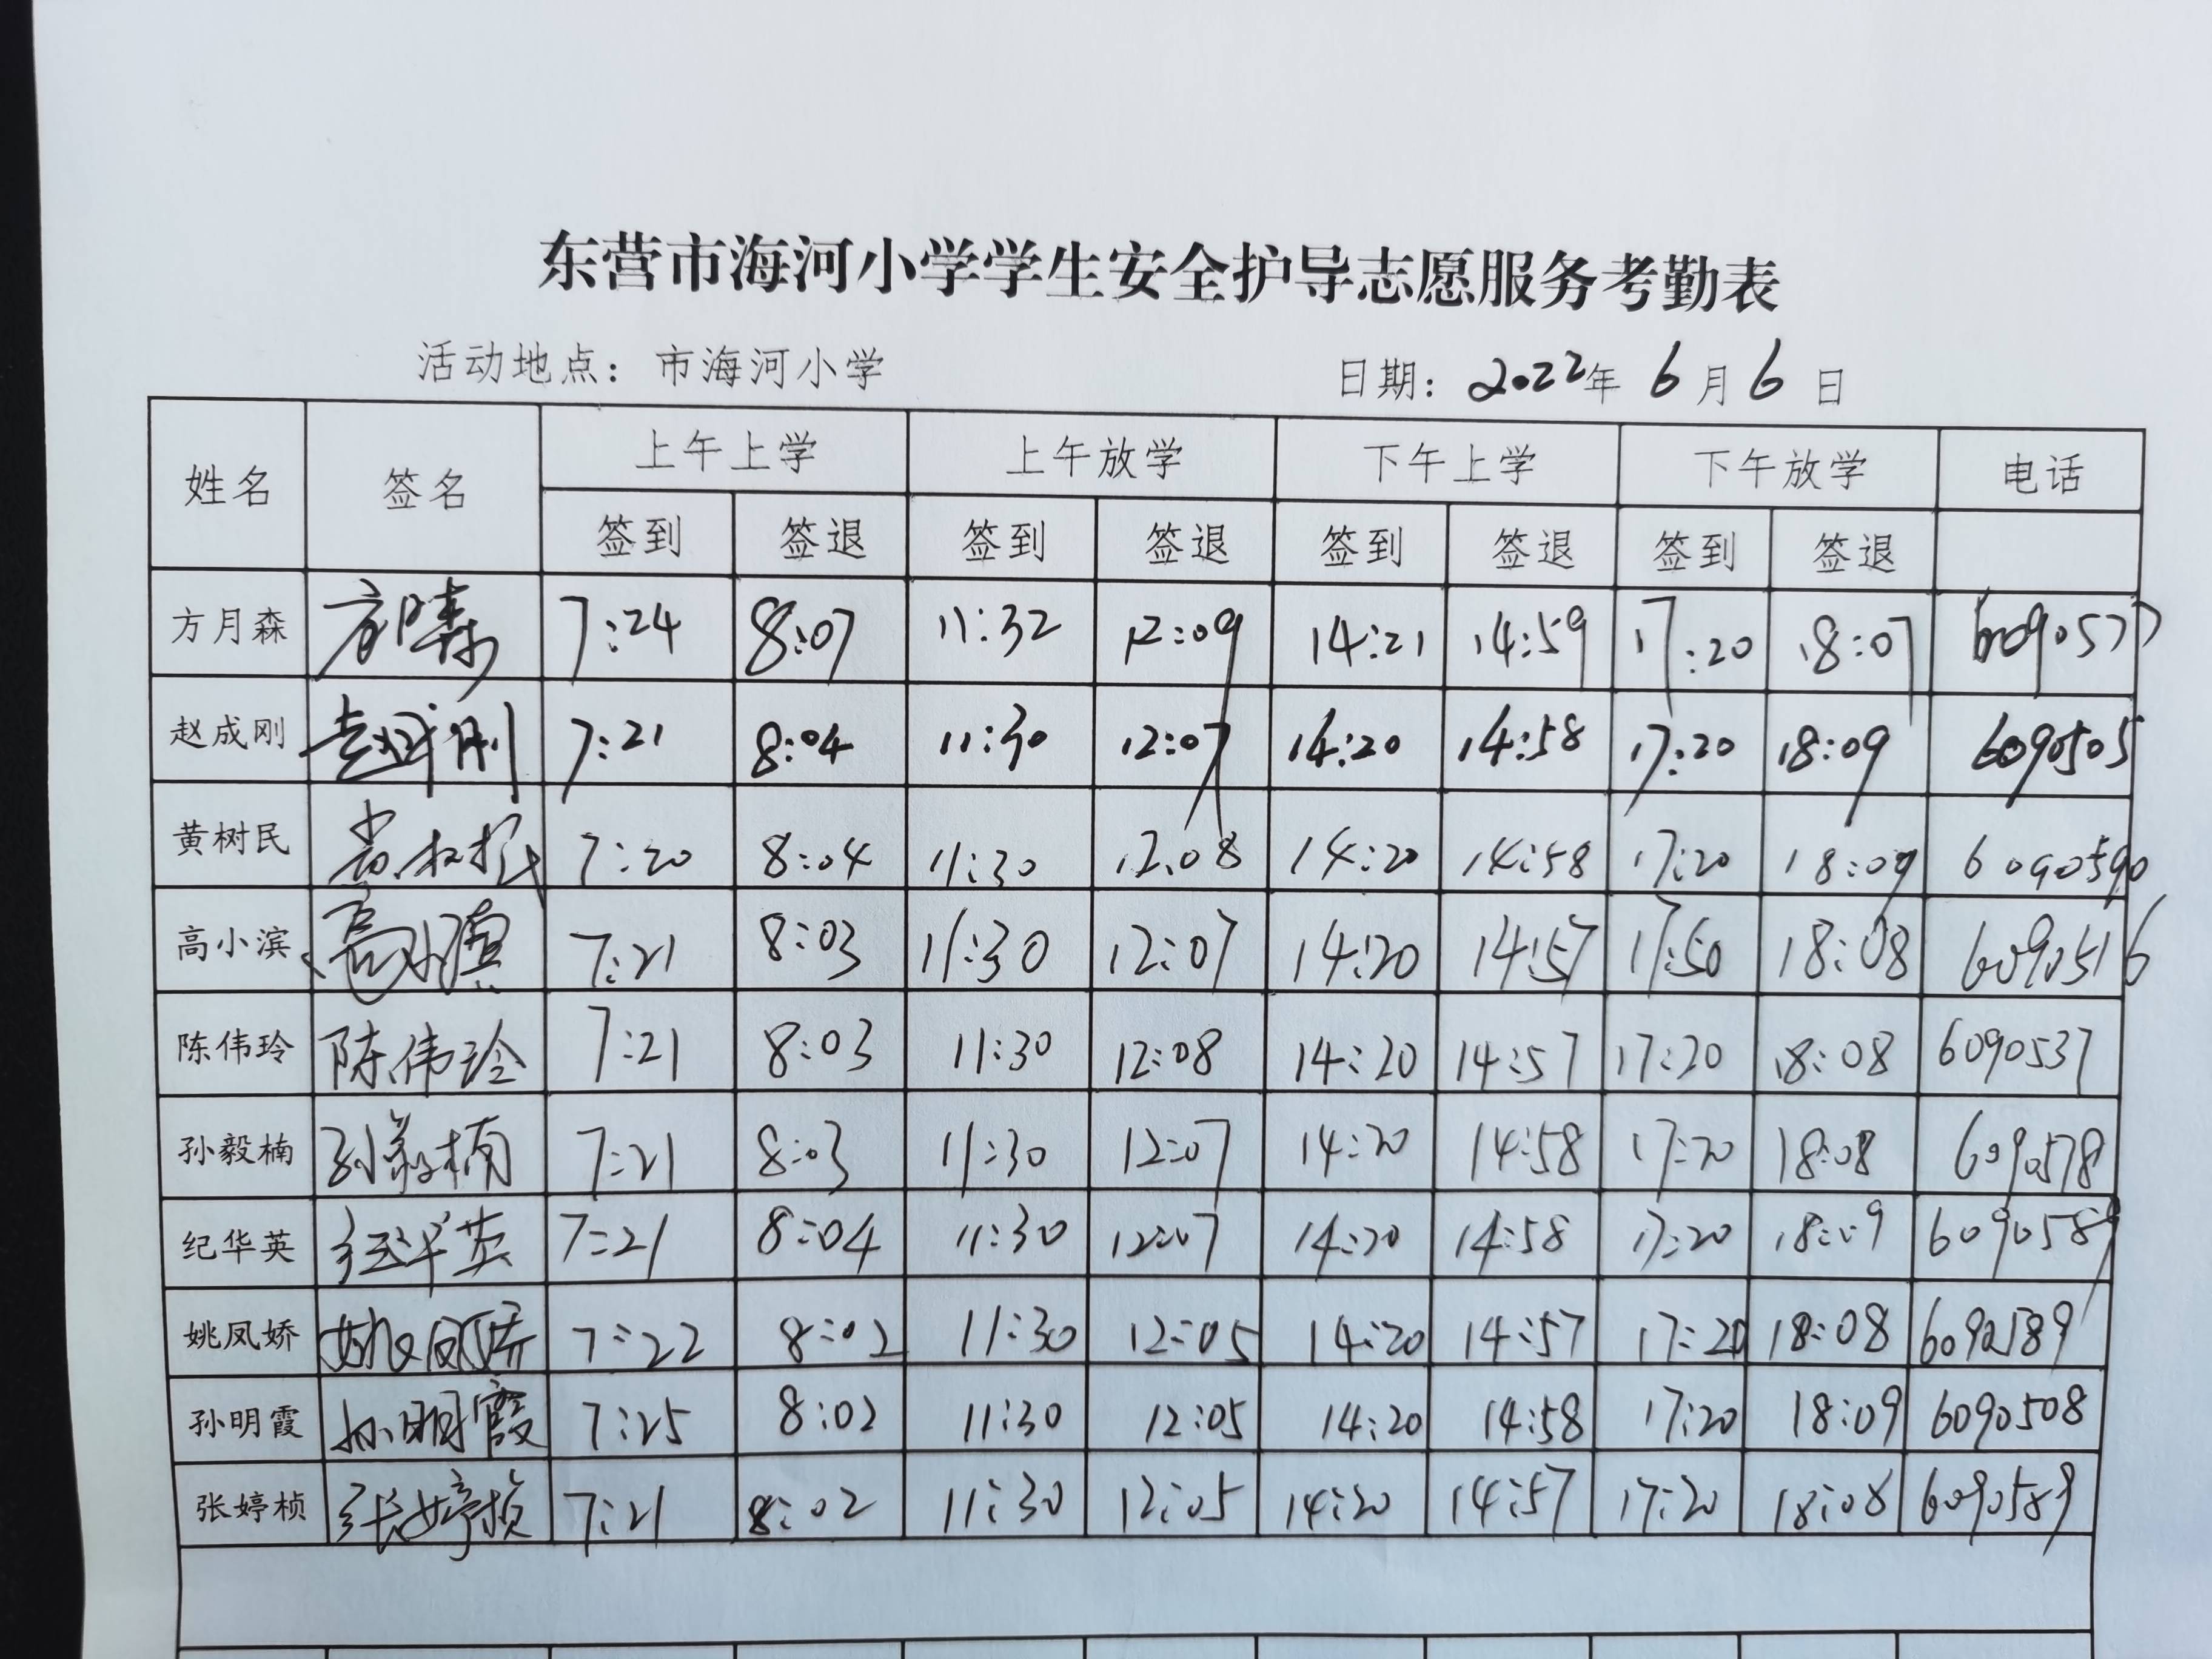 东营市海河小学学生安全护导志愿服务考勤表
活动地点：市海河小学 日期：2022年 6月6日
姓名 签名 上午上学 上午放学 下午上学 下午放学 电话
签到 签退 签到 签退 签到 签退 签到 签退
方月森 方月森 7:24 8:07 11:32 12:09 14:21 14:59 17:20 18:07 6090577
赵成刚 赵成刚 7:21 8:04 11:30 12:07 14:20 14:58 17:20 18:09 6090505
黄树民 黄树民 7:20 8:04 11:30 12:08 14:20 14:58 17:20 18:09 6090590
高小滨 高小滨 7:21 8:03 11:30 12:07 14:20 14:57 17:50 18:08 6090516
陈伟玲 陈伟玲 7:21 8:03 11:30 12:08 14:20 14:57 17:20 18:08 6090537
孙毅楠 孙毅楠 7:21 8:03 11:30 12:07 14:20 14:58 17:20 18:08 6090578
纪华英 纪华英 7:21 8:04 11:30 12:07 14:20 14:58 17:20 18:09 6090589
姚凤娇 姚凤娇 7:22 8:02 11:30 12:05 14:20 14:57 17:20 18:08 6090589
孙明霞 孙明霞 7:25 8:02 11:30 12:05 14:20 14:58 17:20 18:09 6090508
张婷桢 张婷桢 7:21 8:02 11:30 12:05 14:20 14:57 17:20 18:08 6090589